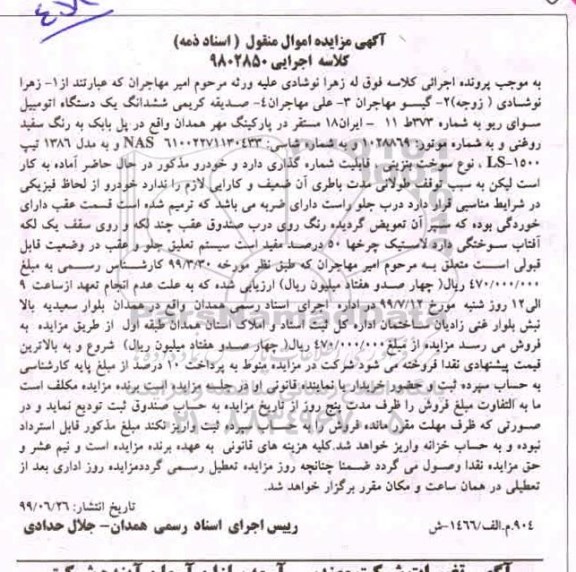 آگهی مزایده اموال منقول ( اسناد ذمه)
کلاسه اجرایی ۹۸۰۲۸۵۰
به موجب پرونده اجرائی کلاسه فوق له زهرا نوشادی علیه ورثه مرحوم امیر مهاجران که عبارتند از۱- زهرا
نوشادی ( زوجه)۲- گیسو مهاجران ۳- علی مهاجران۴- صدیقه کریمی ششدانگ یک دستگاه اتومبیل
سواری ریو به شماره ۳۷۳ط ۱۱ - ایران۱۸ مستقر در پارکینگ مهر همدان واقع در پل بابک به رنگ سفید
روغنی و به شماره موتور: ۱۰۲۸۸۶۹ و به شماره شاسی: NAS ۶۱۰۰۲۲۷۱۱۳۰۴۳۳ و به مدل ۱۳۸۶ تیپ
LS-۱۵۰۰ ، نوع سوخت بنزینی . قابلیت شماره گذاری دارد و خودرو مذکور در حال حاضر آماده به کار
است لیکن به سبب توقف طولانی مدت باطری آن ضعیف و کارایی لازم را ندارد خودرو از لحاظ فیزیکی
در شرایط مناسبی قرار دارد درب جلو راست دارای ضربه می باشد که ترمیم شده است قسمت عقب دارای
خوردگی بوده که سپر آن تعویض گردیده رنگ روی درب صندوق عقب چند لکه و روی سقف یک لکه
آفتاب سوختگی دارد لاستیک چرخها ۵۰ درصد مفید است سیستم تعلیق جلو و عقب در وضعیت قابل
قبولی است متعلق به مرحوم امیر مهاجران که طبق نظر مورخه ۹۹/۳/۳۰ کارشناس رسمی به مبلغ
۴۷۰/۰۰۰/۰۰۰ ریال( چهار صدو هفتاد میلیون ریال) ارزیابی شده که به علت عدم انجام تعهد ازساعت ۹
الی۱۲ روز شنبه مورخ ۹۹/۷/۱۲ در اداره اجرای اسناد رسمی همدان واقع درهمدان بلوار سعیدیه بالا
نبش بلوار غنی زادیان ساختمان اداره کل ثبت اسناد و املاک استان همدان طبقه اول از طریق مزایده به
فروش می رسد مزایده از مبلغ ۴۷۰/۰۰۰/۰۰۰ ریال( چهار صدو هفتاد میلیون ریال) شروع و به بالاترین
قیمت پیشنهادی نقدا فروخته می شود شرکت در مزایده منوط به پرداخت ۱۰ درصد از مبلغ پایه کارشناسی
به حساب سپرده ثبت و حضور خریدار یا نماینده قانونی او در جلسه مزایده است برنده مزایده مکلف است
ما به التفاوت مبلغ فروش را ظرف مدت پنج روز از تاریخ مزایده به حساب صندوق ثبت تودیع نماید و در
صورتی که ظرف مهلت مقرر مانده فروش را به حساب سپرده ثبت واریز نکند مبلغ مذکور قابل استرداد
نبوده و به حساب خزانه واریز خواهد شد.کلیه هزینه های قانونی به عهده برنده مزایده است و نیم عشر و
حق مزایده نقدا وصول می گردد ضمنا چنانچه روز مزایده تعطیل رسمی گرددمزایده روز اداری بعد از
تعطیلی در همان ساعت و مکان مقرر برگزار خواهد شد.
تاریخ انتشار: ۹۹/۰۶/۲۶
۹۰۴.م.الف/۱۴۶۶-ش رییس اجرای اسناد رسمی همدان- جلال حدادی